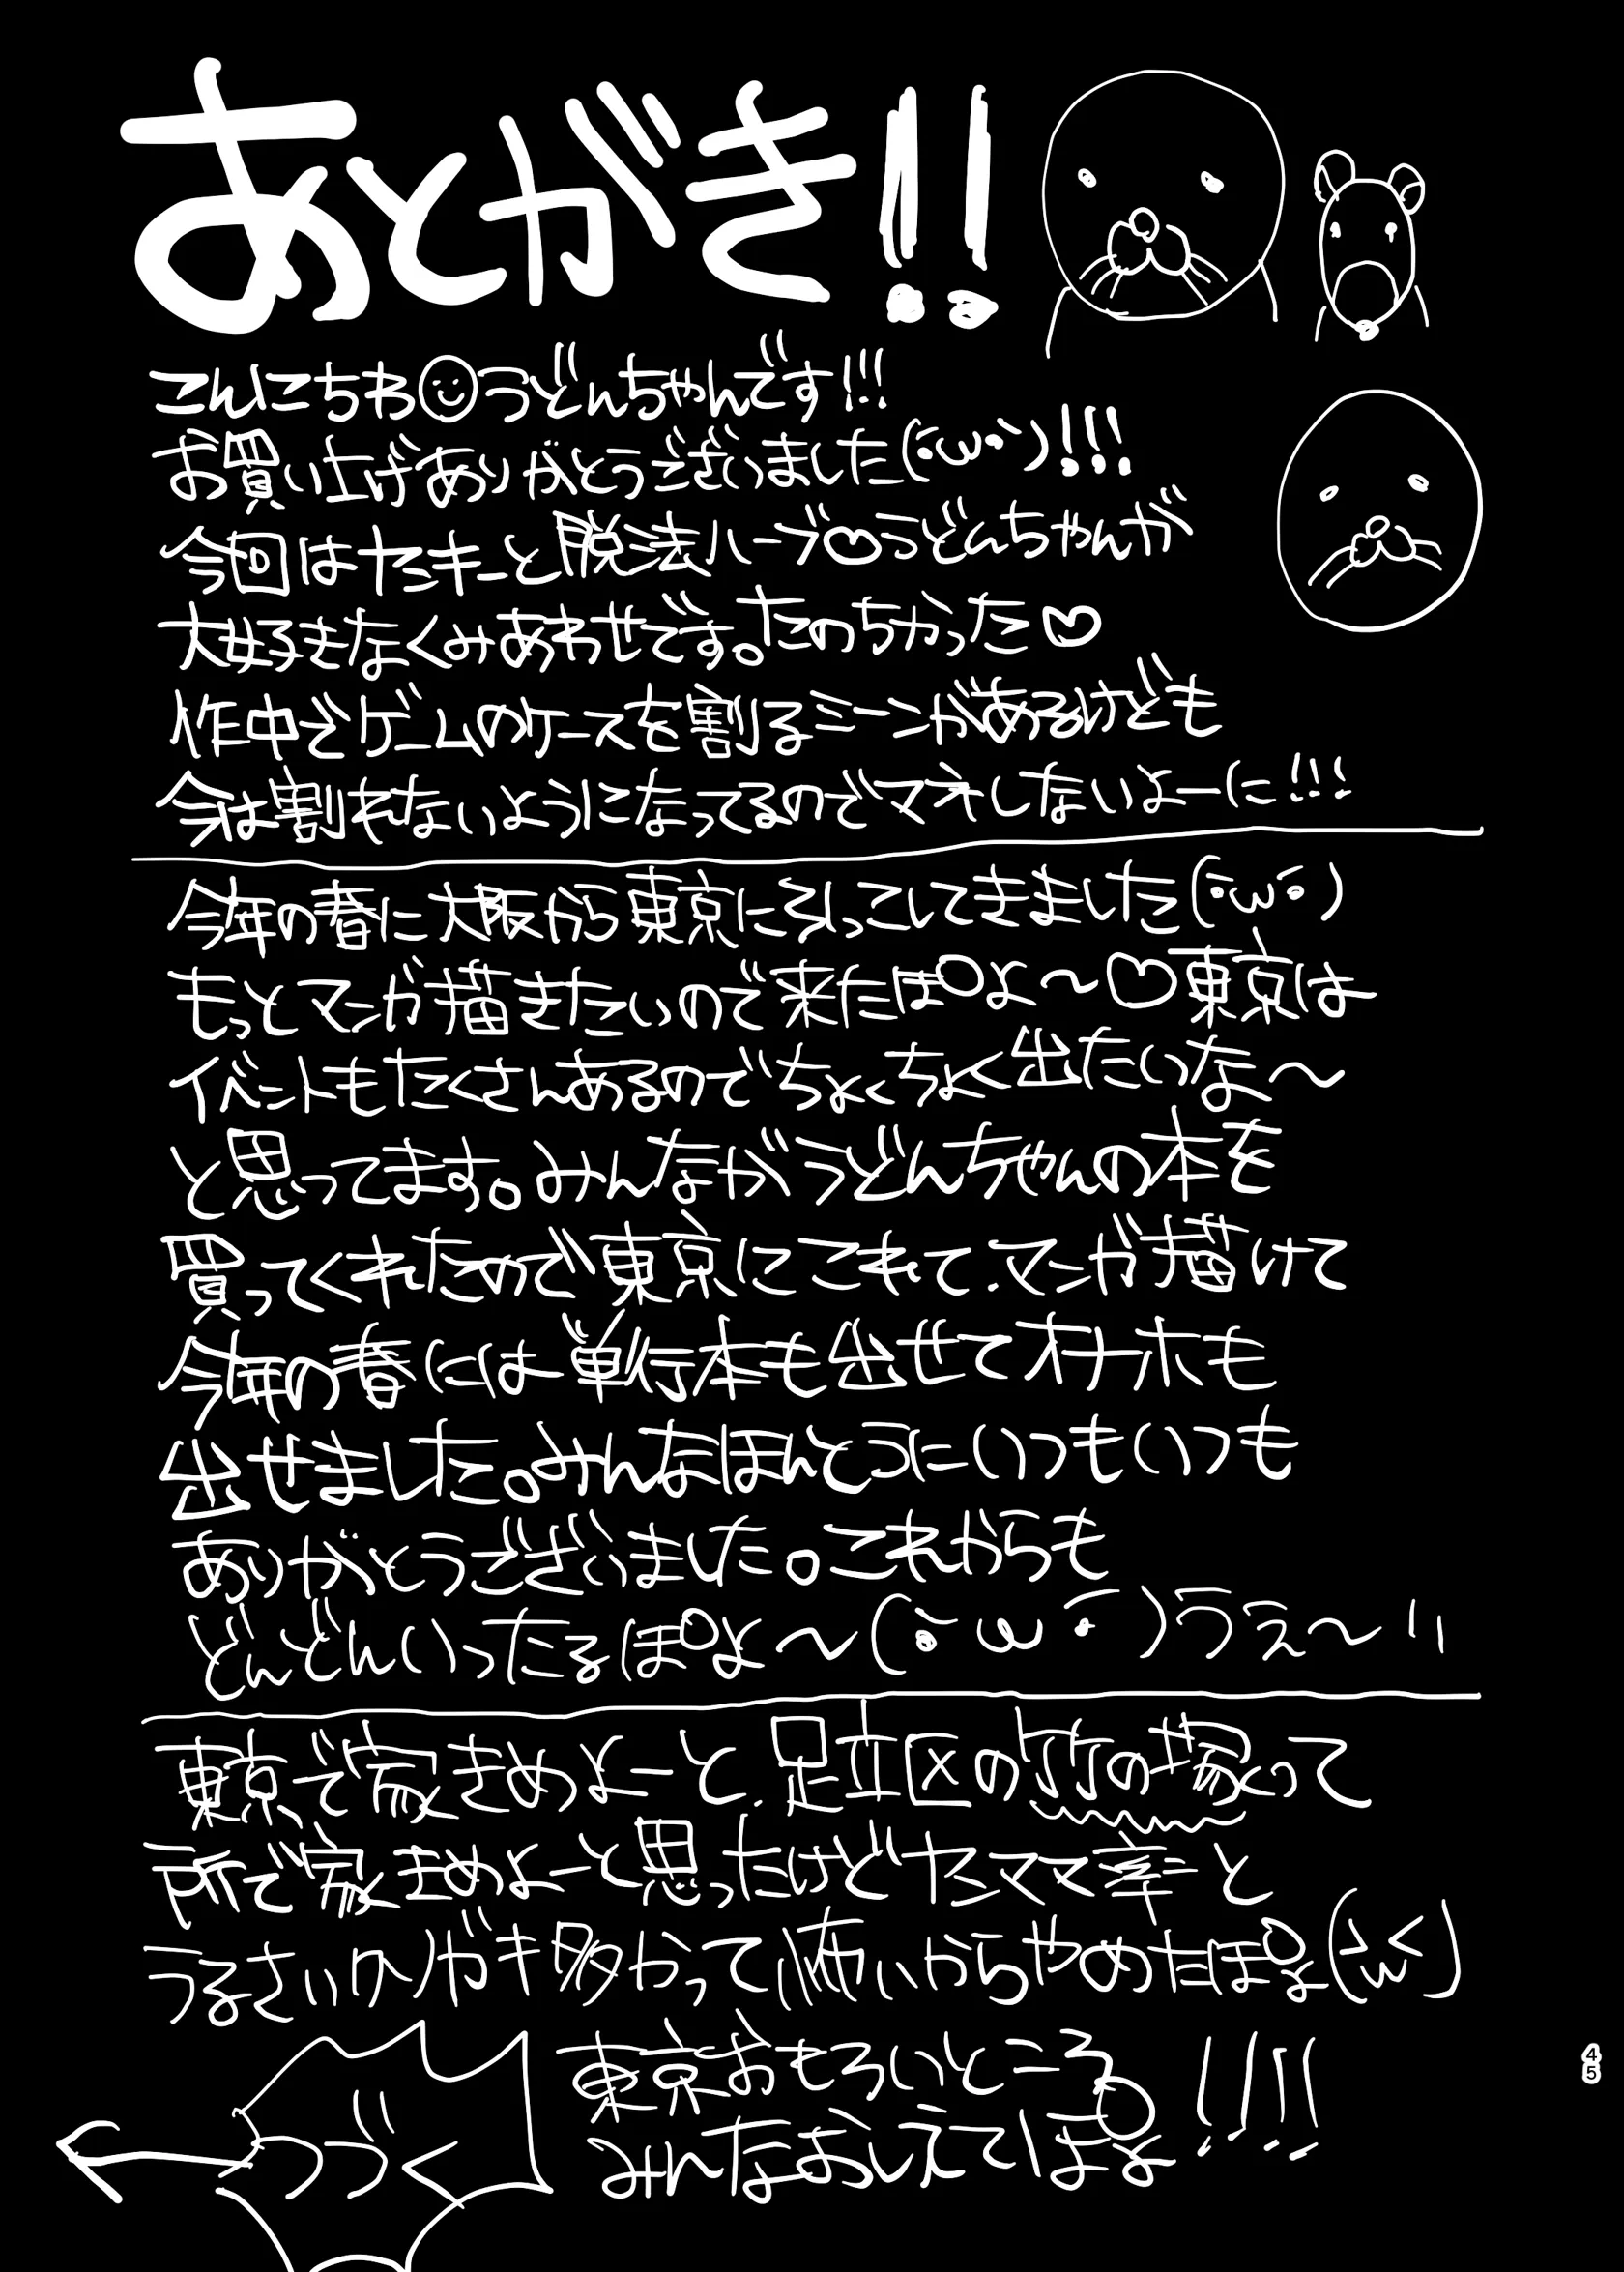 あとがき!!
こんにちわ☺うどんちゃんです!!!
お買い上げありがとうございました(・ω・)!!!
今回はヤンキーと脱法ハーブ♡うどんちゃんが
大好きなくみあわせです。たのちかった♡
作中でゲームのケースを割るシーンがあるけども
今は割れないようになってるのでマネしないよーに!!!
今年の春に大阪から東京にひっこしてきました(・ω・)
もっとマンガ描きたいので来たぽよ〜♡東京は
イベントもたくさんあるのでちょくちょく出たいな〜
と思ってます。みんながうどんちゃんの本を
買ってくれたので東京にこれて、マンガ描けて
今年の春には単行本も出せてオナホも
出せました。みんなほんとうにいつもいつも
ありがとうございました。これからも
どんどんいったるぽよ〜(・ω・)うぇ〜い
東京で家きめよーと、足立区の竹の塚って
所で家きめよーと思ったけどヤンママ率と
うるさいクソガキ多かって怖いからやめたぽよ(>ω<)
東京おもろいところ
みんなおしえてぽよ!!!
つづく
45